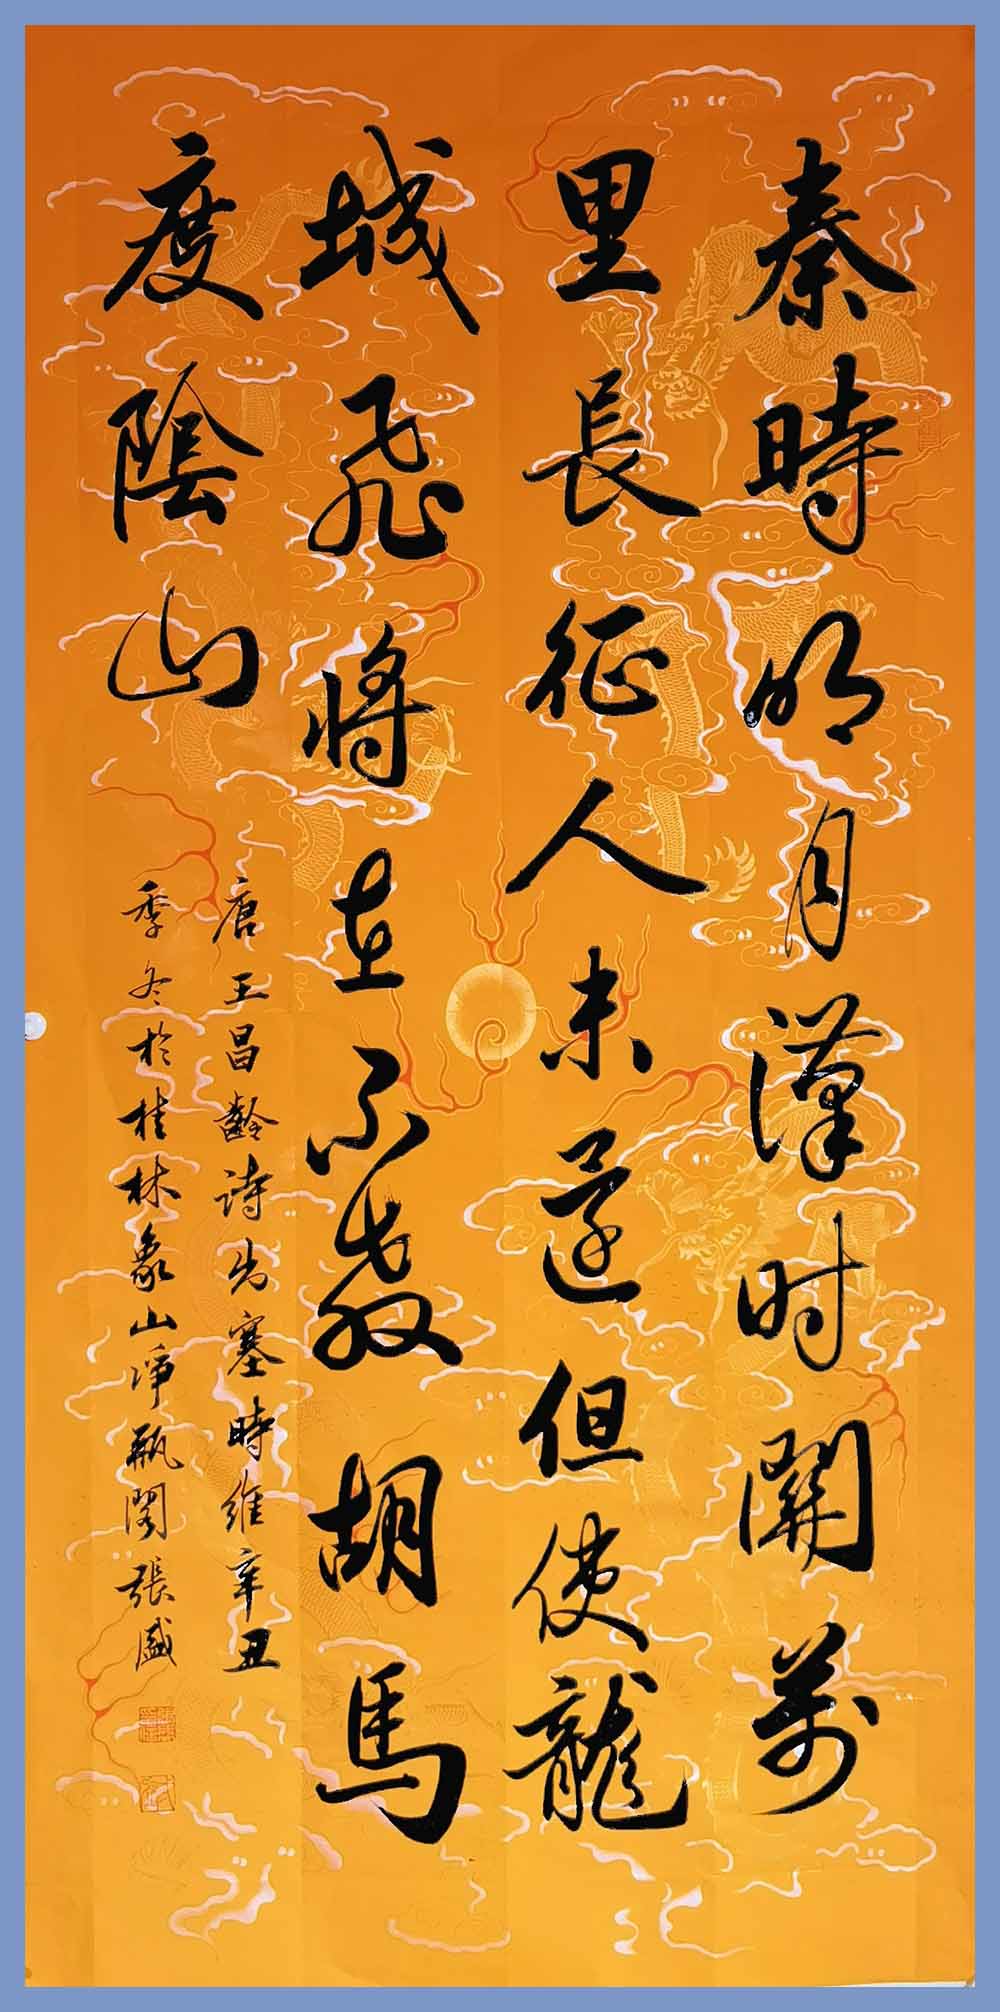 秦時明月漢时關萬
里長征人未還但使龍
城飛將在不教胡馬
度陰山
唐王昌齡诗出塞時維辛丑
季冬於桂林象山净瓶阁張盛